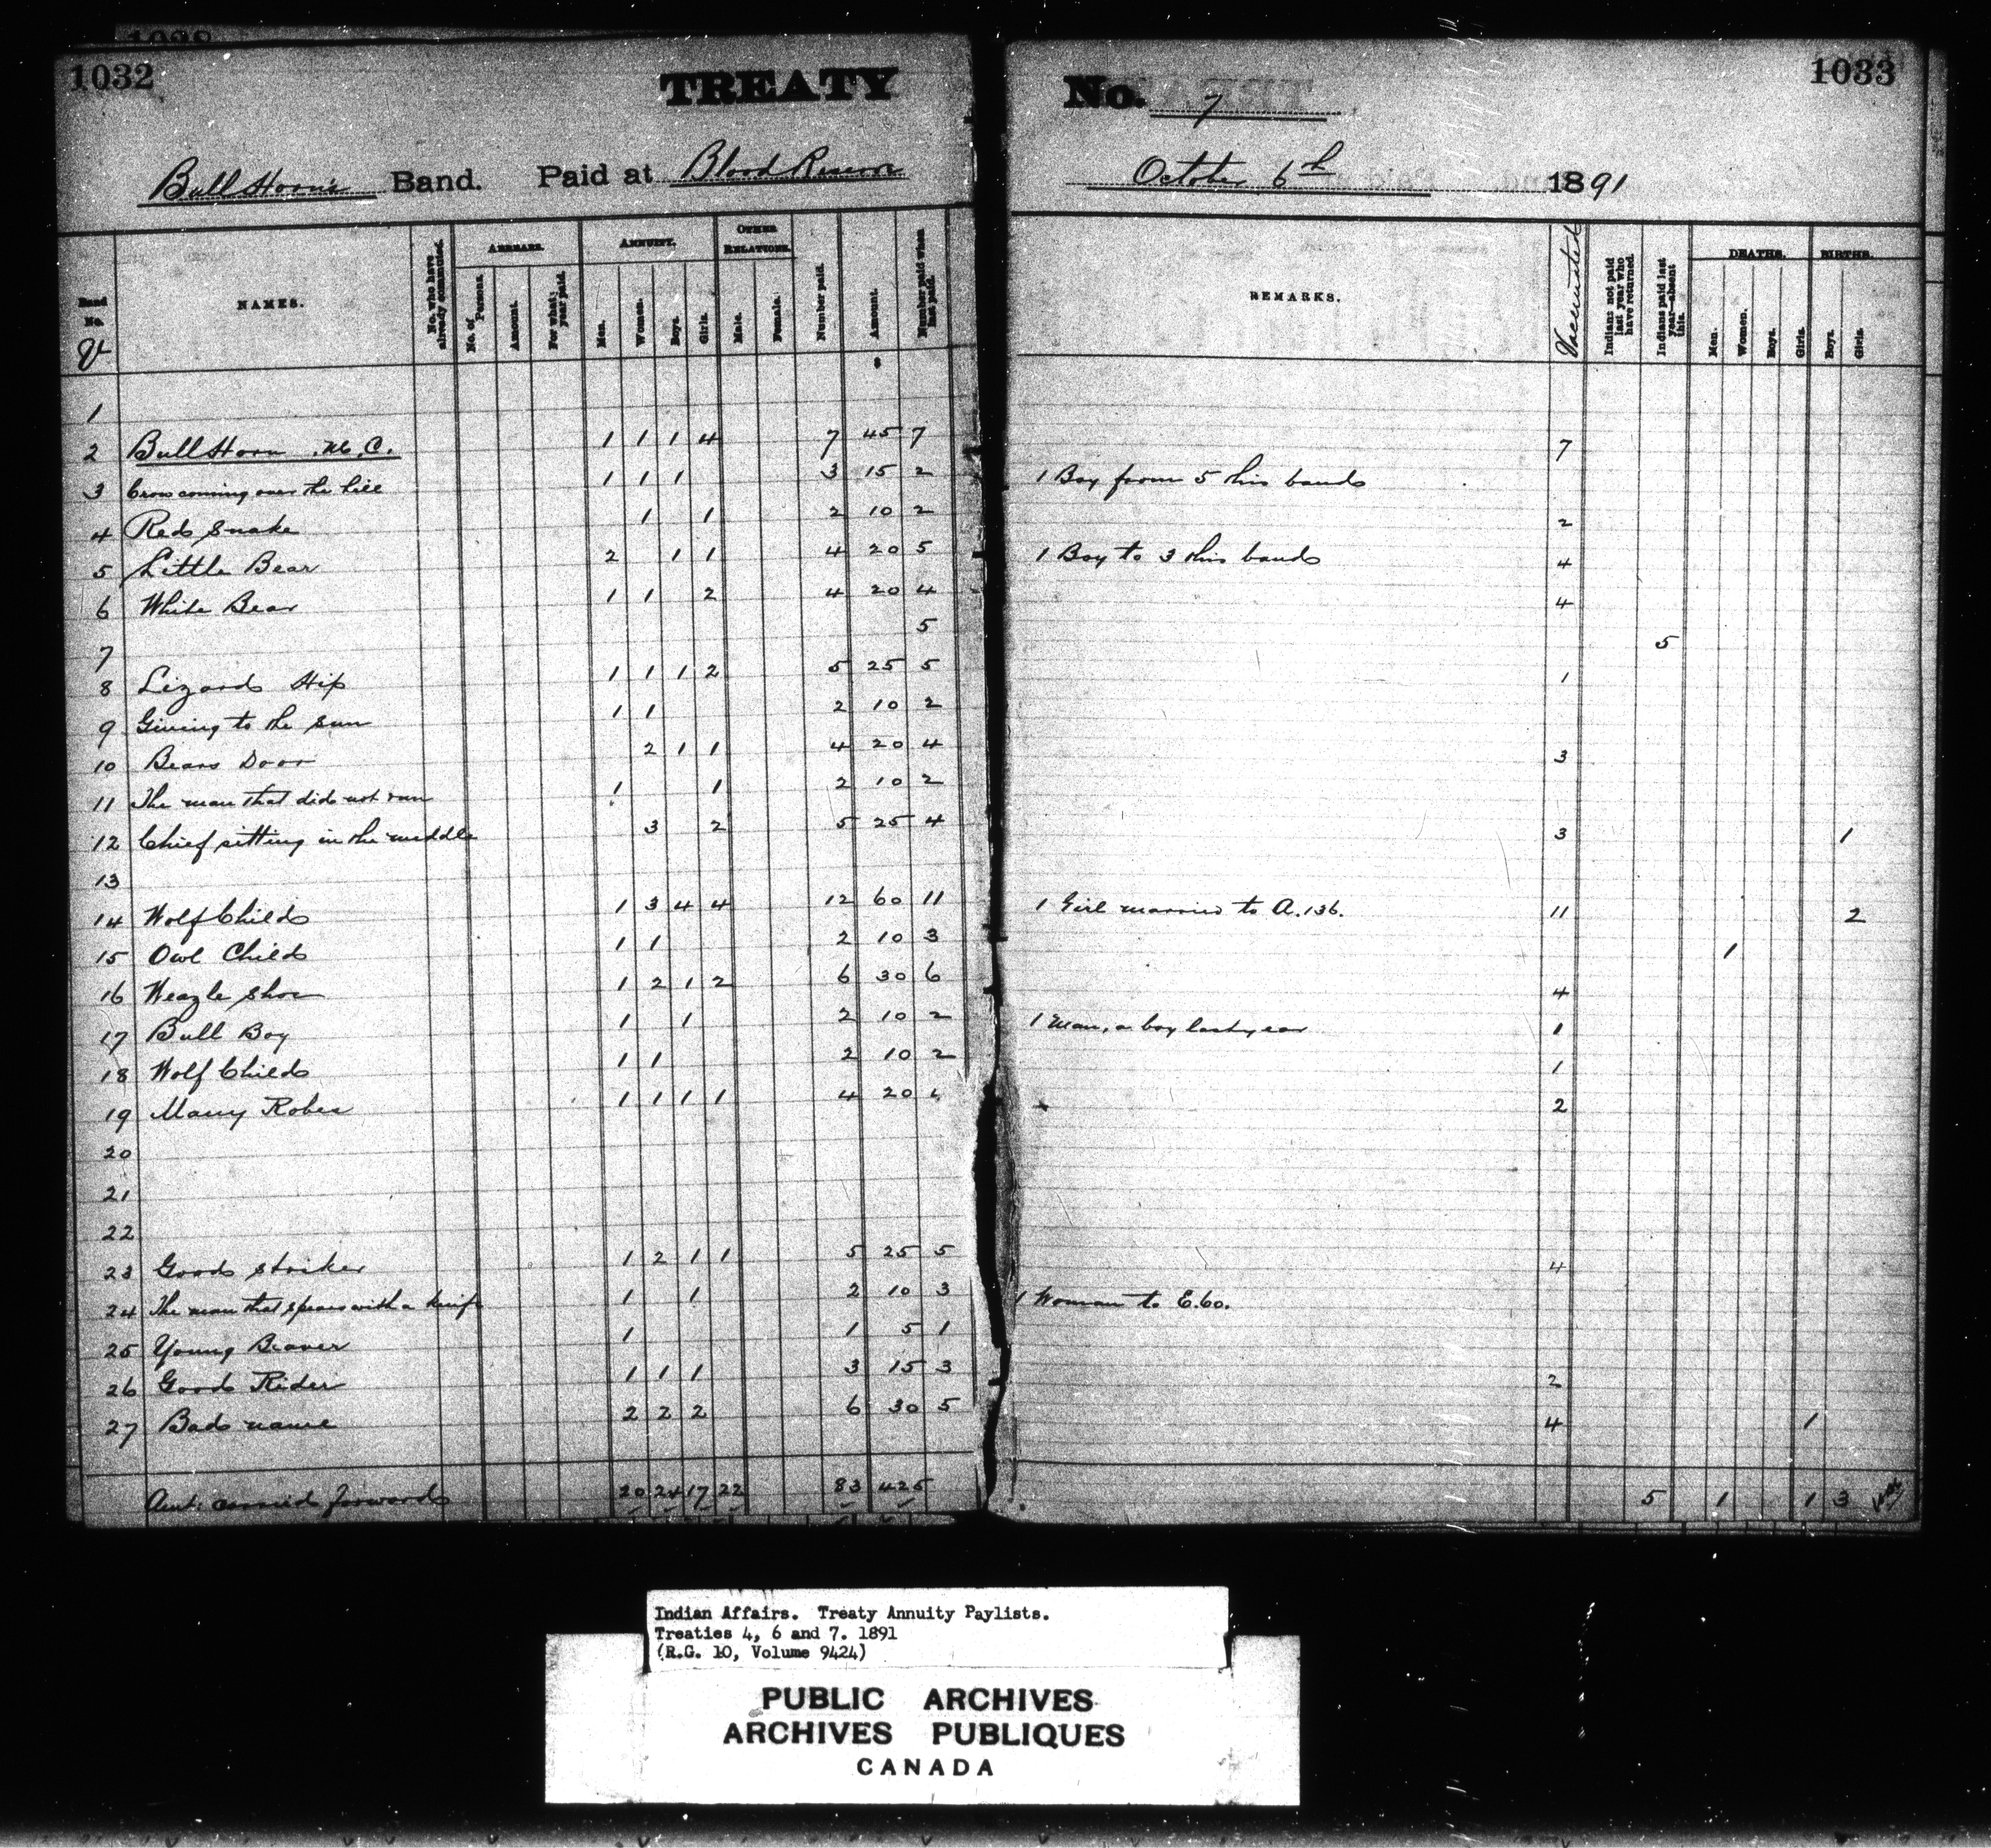 1032
TREATY
No. 7
1033
Bull Horn's Band. Paid at Blood Reserve
October 6th 1891
Band No. V
NAMES.
No. who have already commuted.
ARREARS.
No. of Persons.
Amount.
For what year paid.
ANNUITY.
Men.
Women.
Boys.
Girls.
OTHER RELATIONS.
Male.
Female.
Number paid.
Amount.
Number paid when last paid.
REMARKS.
Vaccinated
Indians not paid last year who have returned.
Indians paid last year—absent this.
DEATHS.
Men.
Women.
Boys.
Girls.
BIRTHS.
Boys.
Girls.
$
1
2 Bull Horn M.C. 1 1 1 4 7 45 7 7
3 Crow coming over the hill 1 1 1 3 15 2 1 Boy from 5 this band
4 Red Snake 1 1 2 10 2 2
5 Little Bear 2 1 1 4 20 5 1 Boy to 3 this band 4
6 White Bear 1 1 2 4 20 4 4
7 5 5
8 Lizard Hip 1 1 1 2 5 25 5 1
9 Giving to the Sun 1 1 2 10 2
10 Bears Door 2 1 1 4 20 4 3
11 The man that did not run 1 1 2 10 2
12 Chief sitting in the middle 3 2 5 25 4 3 1
13
14 Wolf Child 1 3 4 4 12 60 11 1 Girl married to A.136. 11 2
15 Owl Child 1 1 2 10 3 1
16 Weazle Shoe 1 2 1 2 6 30 6 4
17 Bull Boy 1 1 2 10 2 1 Man, a boy last year 1
18 Wolf Child 1 1 2 10 2 1
19 Many Robes 1 1 1 1 4 20 4 2
20
21
22
23 Good Striker 1 2 1 1 5 25 5 4
24 The man that spears with a knife 1 1 2 10 3 1 Woman to E.60.
25 Young Beaver 1 1 5 1
26 Good Rider 1 1 1 3 15 3 2
27 Bad name 2 2 2 6 30 5 4 1
Amt: carried forward 20 24 17 22 83 425 5 1 1 3
Indian Affairs. Treaty Annuity Paylists.
Treaties 4, 6 and 7. 1891
(R.G. 10, Volume 9424)
PUBLIC ARCHIVES
ARCHIVES PUBLIQUES
CANADA